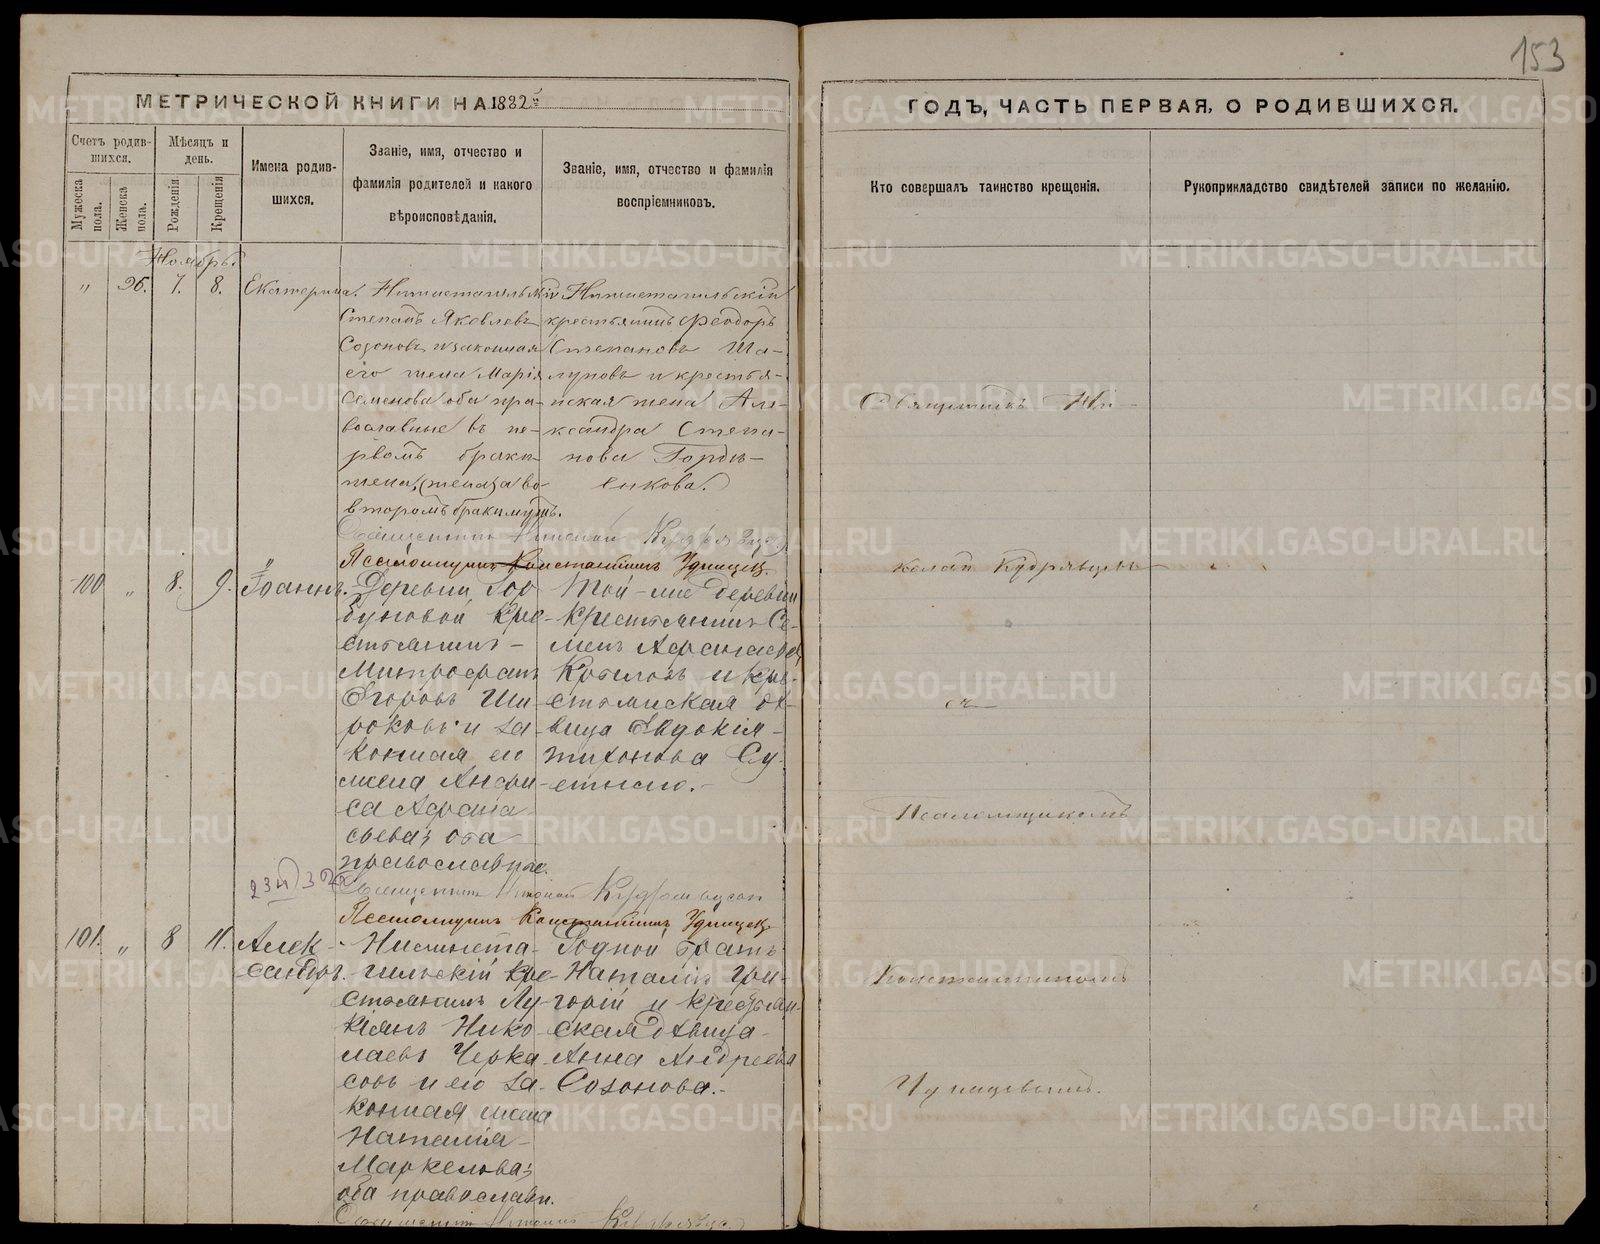 153
МЕТРИЧЕСКОЙ КНИГИ НА 1882й
ГОДЪ, ЧАСТЬ ПЕРВАЯ, О РОДИВШИХСЯ.
Счетъ родив-
шихся.
Мужеска
пола.
Женска
пола.
Мѣсяцъ и
день.
Рожденія
Крещенія
Имена родив-
шихся.
Званіе, имя, отчество и
фамилія родителей и какого
вѣроисповѣданія.
Званіе, имя, отчество и фамилія
воспріемниковъ.
Кто совершалъ таинство крещенія.
Рукоприкладство свидѣтелей записи по желанію.
Ноябрь
„ 96. 7. 8. Екатерина.
Нижнетагильскій
Степанъ Яковлевъ
Созоновъ и законная
его жена Марія
Семенова оба пра-
вославные въ пе-
рвомъ браки
жена, (жена) а во
второмъ браки мужъ.
Нижнетагильскій
крестьянинъ Феодоръ
Степановъ Ша-
луновъ и крестья-
нская жена Але-
ксандра Степа-
нова Горди-
енкова.
Священникъ Николай Кудрявцев
Псаломщикъ Константинъ Удинцев
100 „ 8. 9. Іоаннъ.
Деревни Гор
буновой кре-
стьянинъ
Митрофанъ
Егоровъ Ши-
роковъ и за-
конная его
жена Анфи-
са Афана-
сьева; оба
православные.
Той-же деревни
крестьянинъ Се-
менъ Афанасьев
Копыловъ и кре-
стьянская дѣ-
вица Евдокія
Тихонова Су-
етина.
Священникъ Николай Кудрявцев
Псаломщикъ Константинъ Удинцев
101. „ 8 11. Алек-
сандръ.
Нижнета-
гильскій кре-
стьянинъ Лу-
кіянъ Нико
лаевъ Черка
совъ и его за-
конная жена
Наталія
Маркелова;
оба православн.
Родной братъ
Наталіи Гри-
горій и крестьян-
ская дѣвица
Анна Андреева
Созонова.
Священникъ Николай Кудрявцев
Священникъ Ни-
колай Кудрявцевъ
съ
Псаломщикомъ
Константиномъ
Удинцевымъ.
METRIKI.GASO-URAL.RU